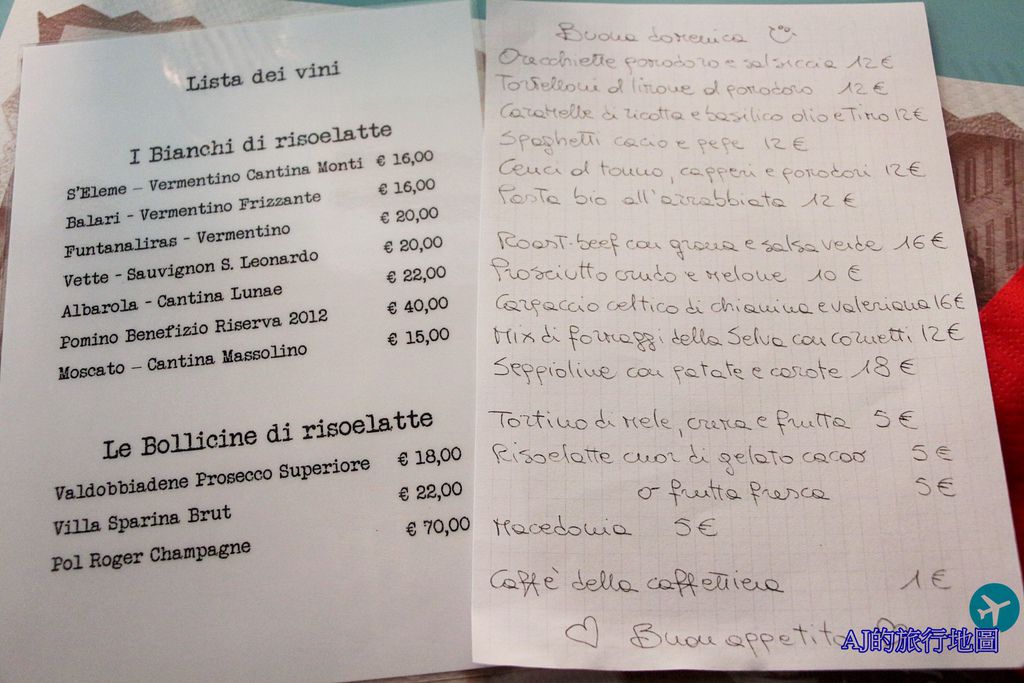 Lista dei vini
I Bianchi di risoelatte
S'Eleme – Vermentino Cantina Monti € 16,00
Balari - Vermentino Frizzante € 16,00
Funtanaliras - Vermentino € 20,00
Vette - Sauvignon S. Leonardo € 20,00
Albarola - Cantina Lunae € 22,00
Pomino Benefizio Riserva 2012 € 40,00
Moscato – Cantina Massolino € 15,00
Le Bollicine di risoelatte
Valdobbiadene Prosecco Superiore € 18,00
Villa Sparina Brut € 22,00
Pol Roger Champagne € 70,00
Buona domenica
Orecchiette pomodoro e salsiccia 12 €
Tortelloni al limone al pomodoro 12 €
Caramelle di ricotta e basilico olio e Timo 12 €
Spaghetti cacio e pepe 12 €
Cenci al tonno, capperi e pomodori 12 €
Pasta bio all'arrabbiata 12 €
Roast-beef con grana e salsa verde 16 €
Prosciutto crudo e melone 10 €
Carpaccio celtico di chianina e valeriana 16 €
Mix di formaggi della Selva con cornetti 12 €
Seppioline con patate e carote 18 €
Tortino di mele, crema e frutta 5 €
Risoelatte cuor di gelato cacao 5 €
o frutta fresca 5 €
Macedonia 5 €
Caffè della caffettiera 1 €
Buon appetito
AJ的旅行地圖